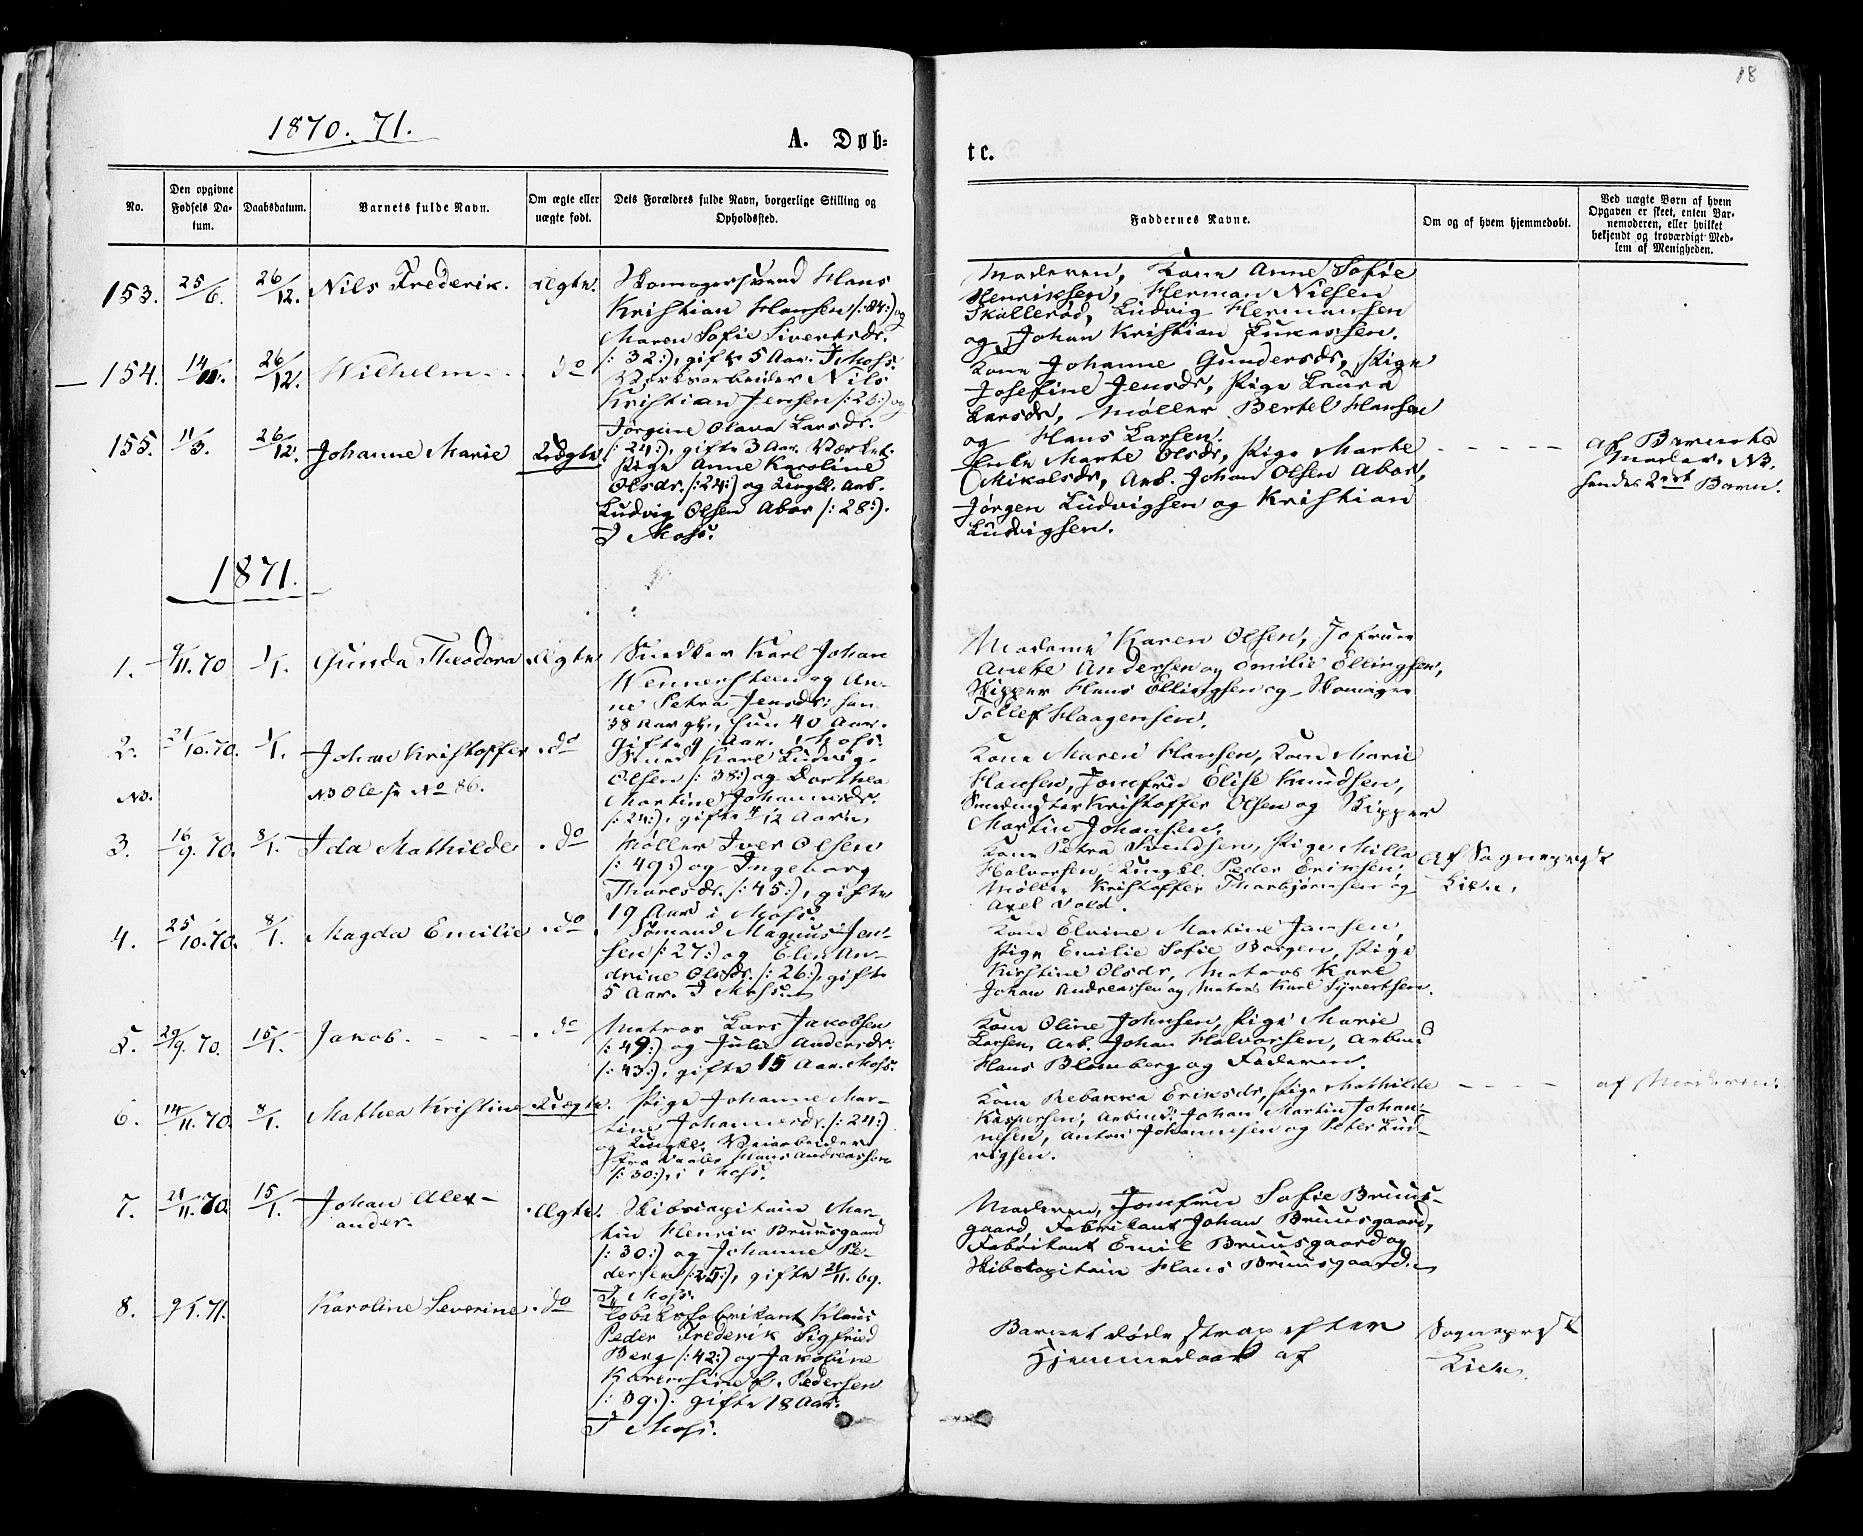 18
1870. 71.
A. Døb=
tc.
No.
Den opgivne Fødsels Da-tum.
Daabsdatum.
Barnets fulde Navn.
Om ægte eller uægte født.
Dets Forældres fulde Navn, borgerlige Stilling og Opholdssted.
Faddernes Navne.
Om og af hvem hjemmedøbt.
Ved uægte Børn af hvem Opgaven er skeet, enten Bar-nemoderen, eller hvilket bekjendt og troværdigt Med-lem af Menigheden.
153. 25/6. 26/12. Nils Frederik. Ægte.
Skomagersvend Hans
Kristian Hansen /:34:/ og
Maren Sofie Sivertsdr.
/:32:/, gifte 5 Aar. I Moss.
Moderen, Kone Anne Sofie
Henriksen, Herman Nilsen
Skallerød, Ludvig Hermansen
og Johan Kristian Lukassen.
154. 14/11. 26/12. Wilhelm. do
Værksarbeider Nils
Kristian Jensen /:28:/ og
Jørgine Olava Larsdr.
/:24:/, gifte 3 Aar. Værket.
Kone Johanne Gundersdr, Pige
Josefine Jensdr, Pige Laura
Larsdr, Møller Bertel Hansen
og Hans Larsen.
155. 11/3. 26/12. Johanne Marie Uægte
Pige Anne Karoline
Olsdr. /:24:/ og Ungkl. Arb.
Ludvig Olsen Abor /:28:/.
I Moss.
Enke Marte Olsdr, Pige Marte
Mikalsdr, Arb. Johan Olsen Abor,
Jørgen Ludvigsen og Kristian
Ludvigsen.
af Barnets
Moder. NB.
hendes 2det Barn.
1871.
1. 9/11. 70 1/1. Gunda Theodora Ægte
Snedker Karl Johan
Wennersteen og An-
ne Petra Jensdr: han
38 Aar gl., hun 40 Aar.
gifte 9 Aar. I Moss.
Madame Karen Olsen, Jofruer
Anete Andersen og Emilie Ellingsen,
Skipper Hans Ellingsen og Skomager
Tollef Haagensen.
2. 21/10. 70. 1/1. Johan Kristoffer do
NB. NB Ole se No 86.
Smed Karl Ludvig
Olsen /:38:/ og Dorthea
Martine Johannesdr.
/:24:/, gifte 12 Aar.
Kone Maren Hansen, Kone Marie
Hansen, Jomfru Elise Knudsen,
Kristoffer Olsen og Skipper
Martin Johansen.
3. 16/9. 70. 8/1. Ida Mathilde do
Møller Iver Olsen
/:49:/ og Ingeborg
Tharesdr. /:45:/, gifte
19 Aar i Moss.
Kone Petra Svendsen, Pige Milla
Halvorsen, Ungkl. Peder Eriksen,
Møller Kristoffer Thorbjørnsen og
Axel Vold.
Af Sognepræst
Lien.
4. 25/10. 70. 8/1. Magda Emilie do
Sømand Magnus Jen-
sen /:27:/ og Elen An-
drine Olsdr. /:26:/, gifte
5 Aar. I Moss.
Kone Elvine Martine Jansen,
Pige Emilie Sofie Borgen, Pige
Kirstine Olsdr, Matros Karl
Johan Andreassen og Matros Karl Syvertsen.
5. 29/9. 70. 15/1. Jakob. do
Matros Lars Jakobsen
/:49:/ og Julie Andersdr.
/:43:/, gifte 15 Aar. Moss.
Kone Oline Johnsen, Pige Marie
Larsen, Arb. Johan Halvorsen, Arbeid
Hans Blomberg og Faderen.
6. 14/11. 70. 8/1. Mathea Kristine Uægte.
Pige Johanne Mar-
tine Johannesdr. /:24:/
og Ungkl. Veiarbeider
fra Vaaler Hans Andreassen
/:30:/, i Moss.
Kone Rebakka Eriksdr, Pige Mathilde
Kaspersen, Arbeid. Johan Martin Johan-
nesen, Anton Johannesen og Peter Lud-
vigsen.
af Moderen.
7. 21/11. 70. 15/1. Johan Alex-
ander.
Ægte.
Skibscapitain Mar-
tin Henrik Bruusgaard
/:30:/ og Johanne Pe-
dersen /:25:/, gifte 21/11. 69.
I Moss.
Moderen, Jomfru Sofie Bruus-
gaard, Fabrikant Johan Bruusgaard,
Fabrikant Emil Bruusgaard og
Skibscapitain Hans Bruusgaard.
8. 9/1. 71. Karoline Severine do
Tobaksfabrikant Klaus
Peder Frederik Sigfried
Berg /:42:/ og Jakobine
Pedersen
/:39:/. gifte 18 Aar.
I Moss.
Barnet døde strax efter
Hjemmedaab af
Sognepræst
Lien.